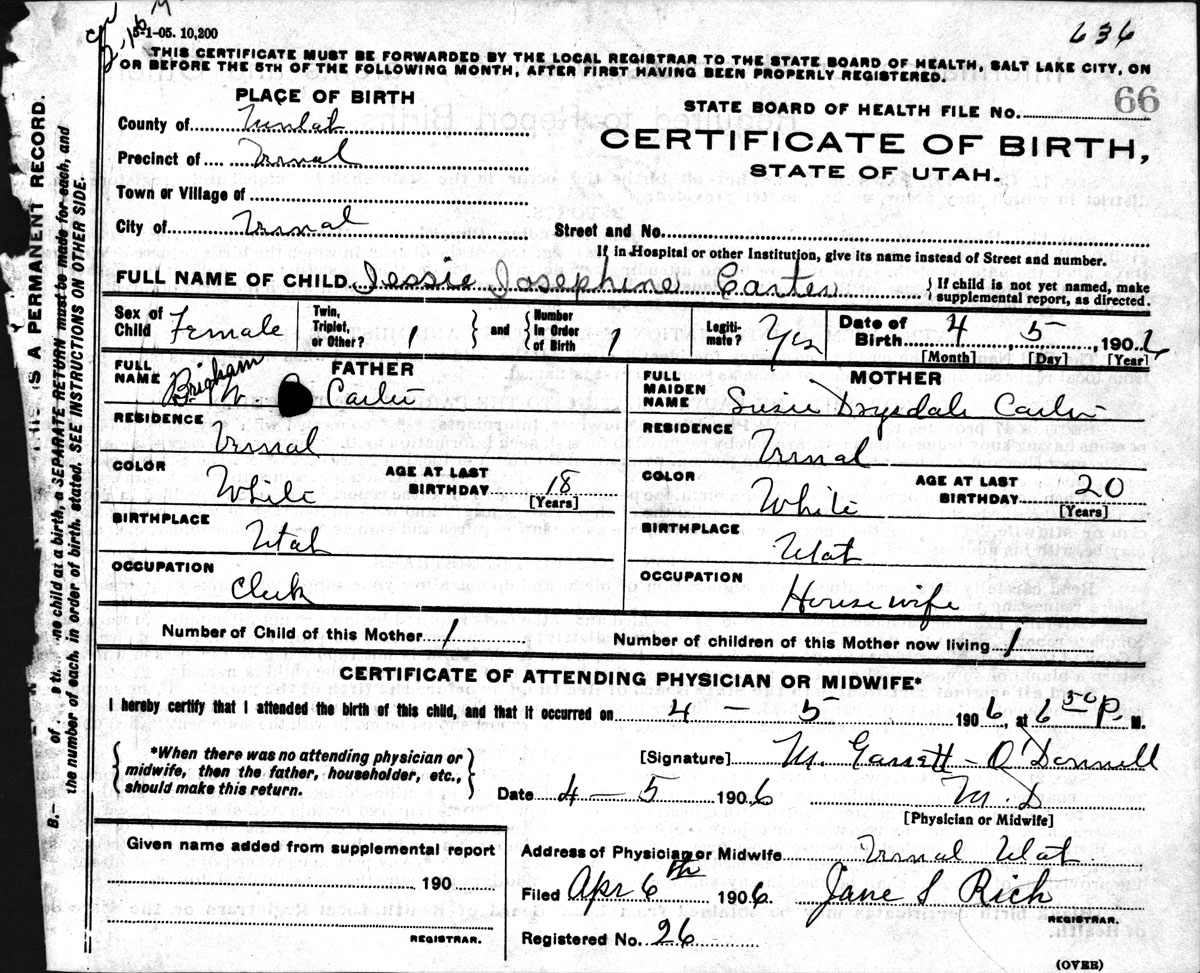 5-1-05. 10,200
636
THIS CERTIFICATE MUST BE FORWARDED BY THE LOCAL REGISTRAR TO THE STATE BOARD OF HEALTH, SALT LAKE CITY, ON
OR BEFORE THE 5TH OF THE FOLLOWING MONTH, AFTER FIRST HAVING BEEN PROPERLY REGISTERED.
PLACE OF BIRTH
STATE BOARD OF HEALTH FILE No. 66
County of
CERTIFICATE OF BIRTH,
Precinct of Vernal
STATE OF UTAH.
Town or Village of
City of Vernal
Street and No.
If in Hospital or other Institution, give its name instead of Street and number.
FULL NAME OF CHILD Jessie Josephine Carter
If child is not yet named, make
supplemental report, as directed.
Sex of Child Female
Twin, Triplet, or Other? 1 and Number in Order of Birth 1
Legitimate? Yes
Date of Birth 4 5 1906
[Month] [Day] [Year]
FATHER
FULL NAME Brigham W Carter
RESIDENCE
Vernal
COLOR White
AGE AT LAST BIRTHDAY 18
[Years]
BIRTHPLACE
Utah
OCCUPATION
Clerk
MOTHER
FULL MAIDEN NAME Susie Drysdale Carter
RESIDENCE
Vernal
COLOR White
AGE AT LAST BIRTHDAY 20
[Years]
BIRTHPLACE
Utah
OCCUPATION
House wife
Number of Child of this Mother 1 Number of children of this Mother now living 1
CERTIFICATE OF ATTENDING PHYSICIAN OR MIDWIFE*
I hereby certify that I attended the birth of this child, and that it occurred on 4 - 5 1906, at 6 30 P. M.
*When there was no attending physician or
midwife, then the father, householder, etc.,
should make this return.
[Signature] M. Garrett - O'Donnell
Date 4 - 5 1906 M. D
[Physician or Midwife]
Given name added from supplemental report
190
REGISTRAR.
Address of Physician or Midwife Vernal Utah
Filed Apr 6th 1906 Jane S Rich
REGISTRAR.
Registered No. 26
(OVER)
IS A PERMANENT RECORD.
ne child at a birth, a SEPARATE RETURN must be made for each, and
the number of each, in order of birth, stated. SEE INSTRUCTIONS ON OTHER SIDE.